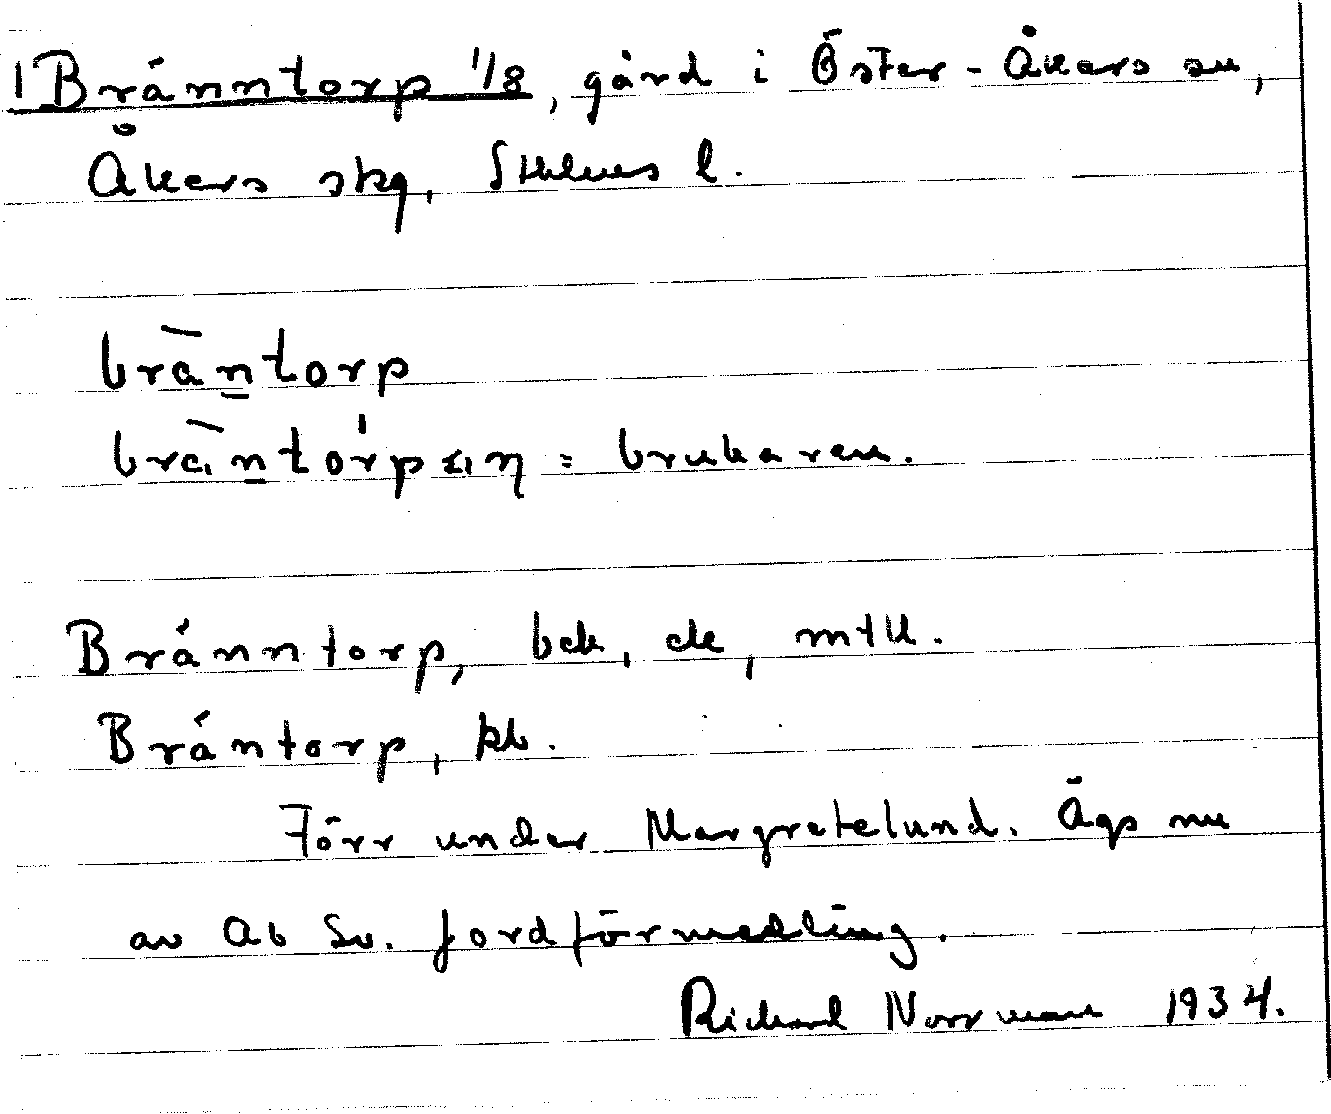 1 Bränntorp 1/8, gård i Öster-Åkers sn,
Åkers skg, Sthlms l.
bräntorp
bräntórpaŋ = brukaren.
Bränntorp, bek, ek, mtll.
Bräntorp, kb.
Förr under Margretelund. Ägs nu
av Ab Sv. jordförmedling.
Richard Norrman 1934.